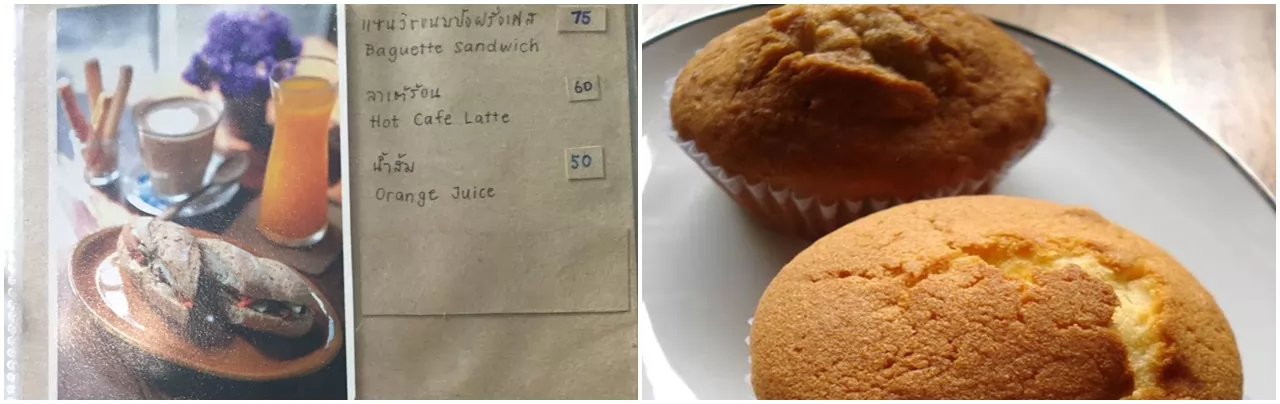 แซนวิชขนมปังฝรั่งเศส 75
Baguette Sandwich
ลาเต้ร้อน 60
Hot Cafe Latte
น้ำส้ม 50
Orange Juice